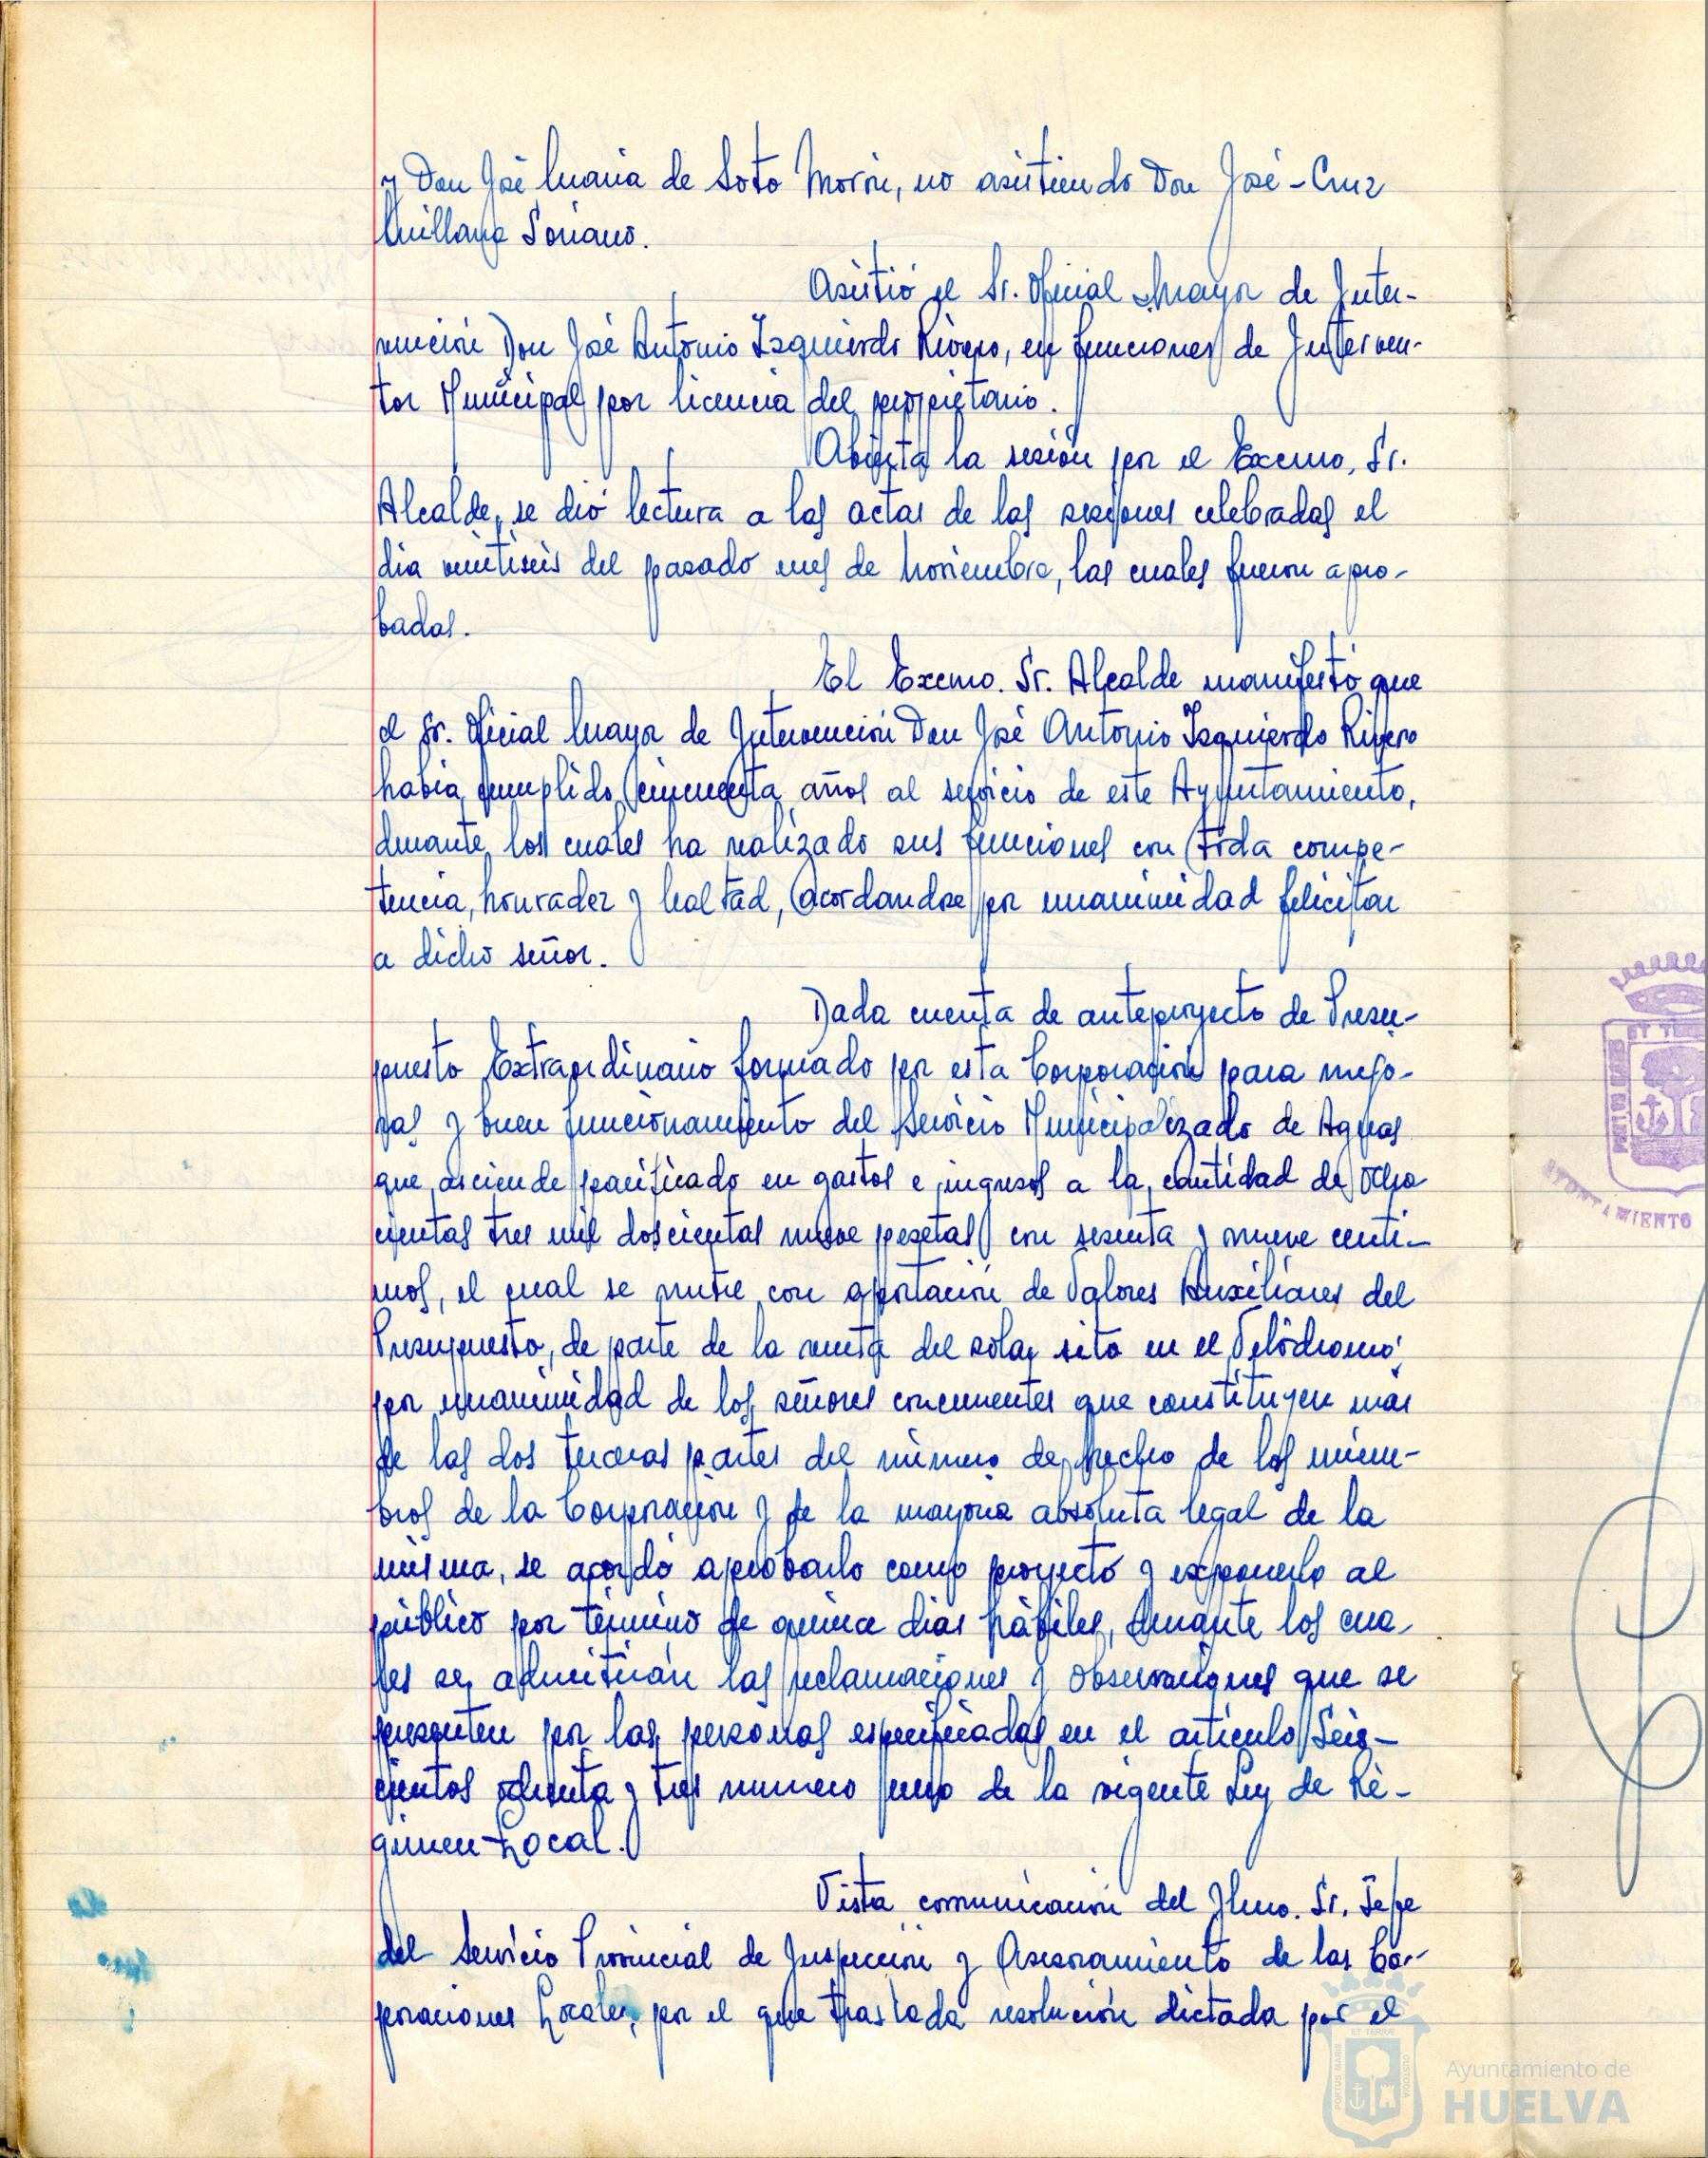 y Don José Maria de Soto Morón, no asistiendo Don José-Cruz
Quillana Soriano.
Asistió el Sr. Oficial Mayor de Inter-
vención Don José Antonio Izquierdo Rivero, en funciones de Interven-
tor Municipal por licencia del propietario.
Abierta la sesión por el Excmo. Sr.
Alcalde, se dió lectura a las actas de las sesiones celebradas el
dia veintiseis del pasado mes de Noviembre, las cuales fueron apro-
badas.
El Excmo. Sr. Alcalde manifestó que
el Sr. Oficial Mayor de Intervención Don José Antonio Izquierdo Rivero
habia cumplido cincuenta años al servicio de este Ayuntamiento,
durante los cuales ha realizado sus funciones con toda compe-
tencia, honradez y lealtad, acordandose por unanimidad felicitar
a dicho señor.
Dada cuenta de anteproyecto de Presu-
puesto Extraordinario formado por esta Corporación para mejo-
ras y buen funcionamiento del Servicio Municipalizado de Aguas
que asciende pacificado en gastos e ingresos a la cantidad de Ocho
cientas tres mil doscientas nueve pesetas con sesenta y nueve centi-
mos, el cual se nutre con aportación de Valores Auxiliares del
Presupuesto, de parte de la venta del solar sito en el Velódromo;
por unanimidad de los señores concurrentes que constituyen más
de las dos terceras partes del número de hecho de los miem-
bros de la Corporación y de la mayoria absoluta legal de la
misma, se acordó aprobarlo como proyecto y exponerlo al
público por término de quince dias hábiles, durante los cua-
les se admitirán las reclamaciones y observaciones que se
presenten por las personas especificadas en el articulo Seis-
cientos ochenta y tres numero uno de la vigente Ley de Ré-
gimen Local.
Vista comunicación del Ilmo. Sr. Jefe
del Servicio Provincial de Inspección y Asesoramiento de las Cor-
poraciones Locales, por el que traslada resolución dictada por el
PORTUS MARIS
ET TERRAE
AYUNTAMIENTO
PORTUS MARIS
ET TERRAE
CUSTODIA
Ayuntamiento de
HUELVA